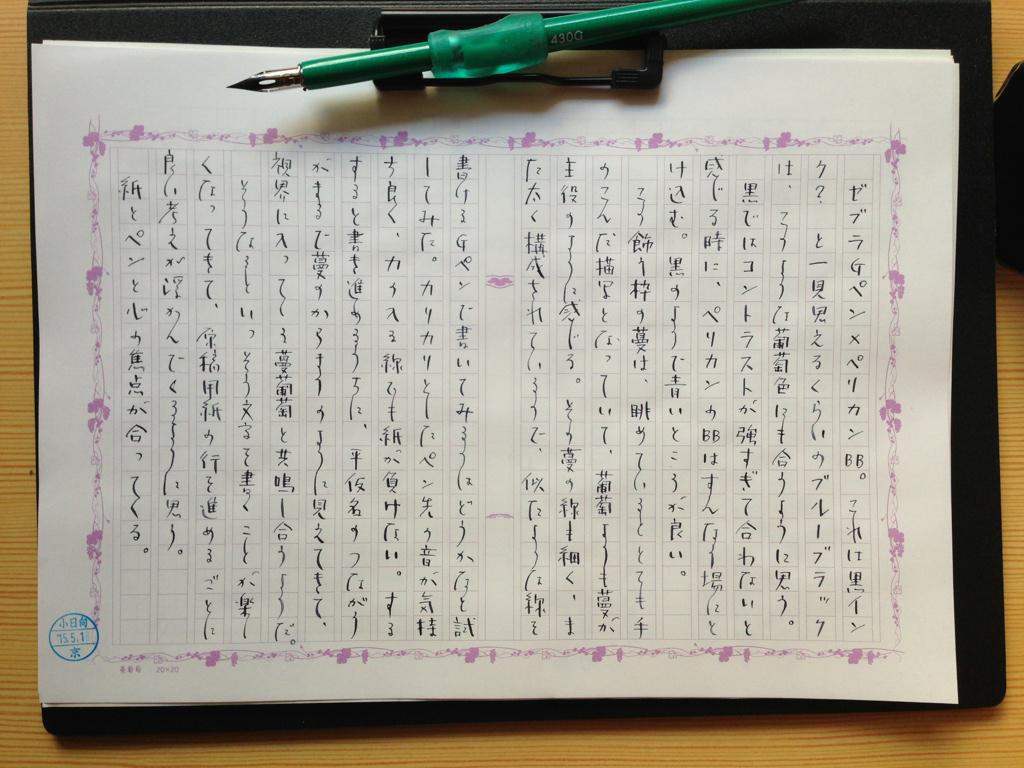 ゼブラGペン×ペリカンBB。これは黒イン
ク？、と一見思えるくらいのブルーブラック
は、このような葡萄色にも合うように思う。
黒ではコントラストが強すぎて合わないと
感じる時に、ペリカンのBBはすんなり場にと
け込む。黒のようで青いところが良い。
この飾り枠の蔓は、眺めているととても手
のこんだ描写となっていて、葡萄よりも蔓が
主役のように感じる。その蔓の線も細く、ま
た太く構成されているので、似たような線を
書けるGペンで書いてみるのはどうかなと試
してみた。カリカリとしたペン先の音が気持
ち良く、力の入る線でも紙が負けない。する
すると書き進めるうちに、平仮名のつながり
がまるで蔓のからまりのように見えてきて、
視界に入ってくる蔓葡萄と共鳴し合うようだ。
そうなるといっそう文字を書くことが楽し
くなってきて、原稿用紙の行を進めるごとに
良い考えが浮かんでくるように思う。
紙とペンと心の焦点が合ってくる。
蔓葡萄 20×20
小日向
'15.5.18
京
430G